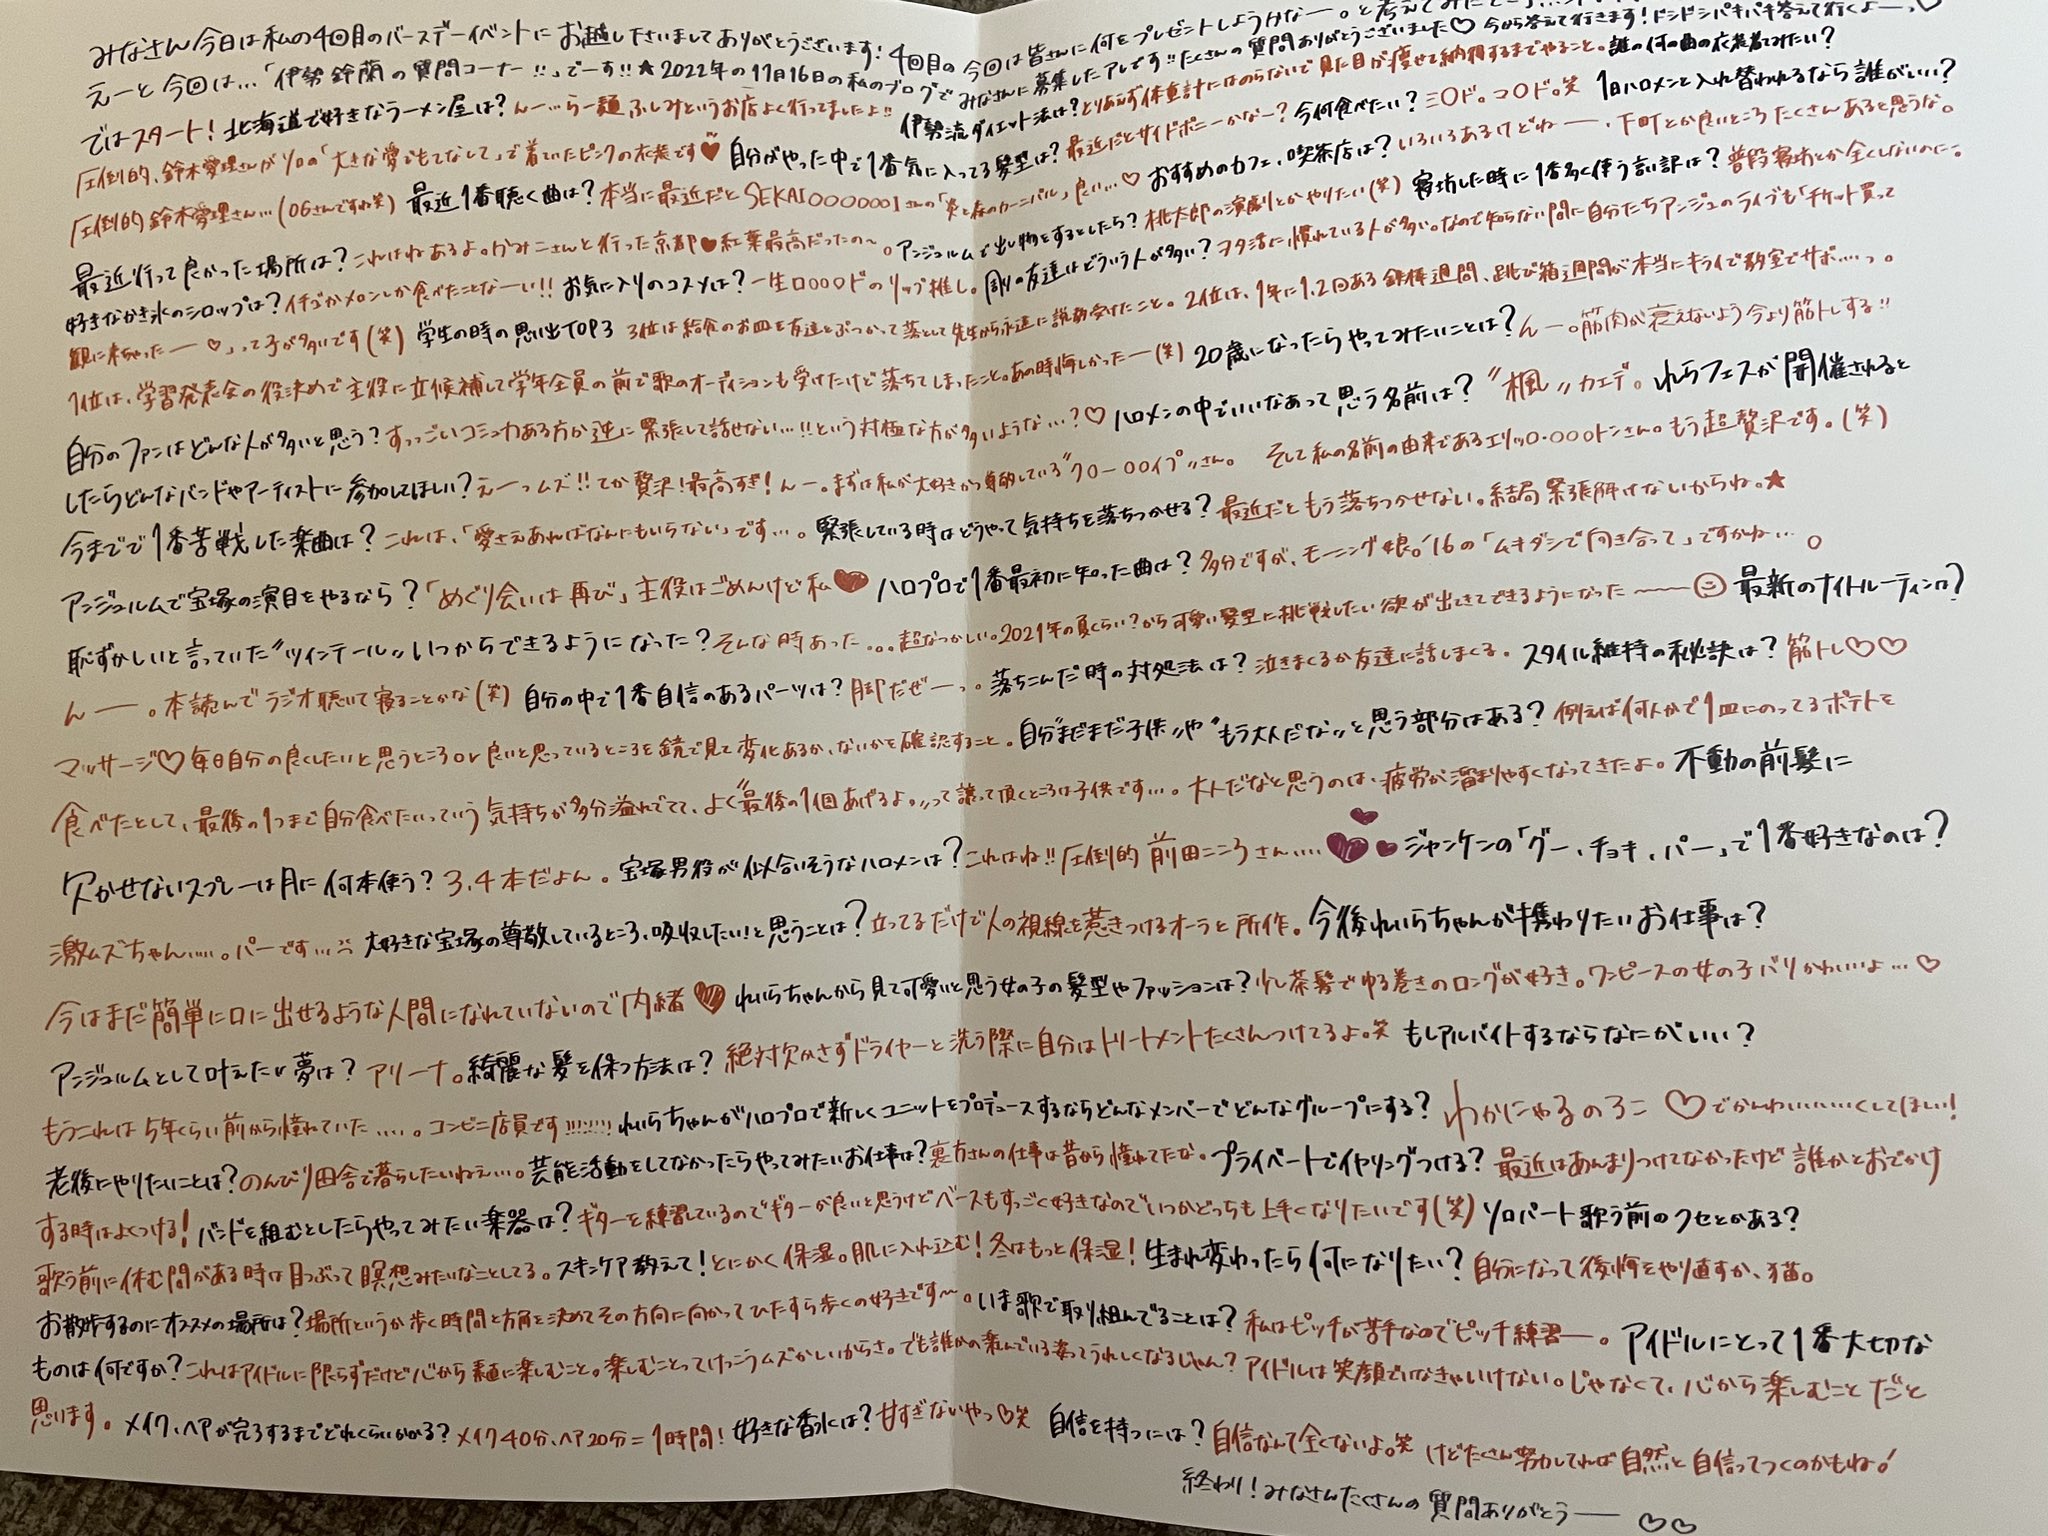 みなさん今日は私の4回目のバースデーイベントにお越しくださいましてありがとうございます!4回目の今回は皆さんに何をプレゼントしようかなー。と考えてみたところ
えーと今回は…「伊勢鈴蘭の質問コーナー!!」でーす!!★2022年の11月16日の私のブログでみなさんに募集したアレです!!たくさんの質問ありがとうございました♡今から答えて行きます!ドシドシパキパキ答えて行くよーっ♡
ではスタート!北海道で好きなラーメン屋は?んー…らー麺ふしみというお店よく行ってましたよ!!伊勢流ダイエット法は?とりあえず体重計にはのらないで見た目が痩せて納得するまでやること。誰の何の曲の衣装着てみたい?
圧倒的、鈴木愛理さんがソロの「大きな愛でもてなして」で着ていたピンクの衣装です♥自分がやった中で1番気に入ってる髪型は?最近だとサイドポニーかなー?今何食べたい?ミ〇ド。コ〇ド。笑 1日ハロメンと入れ替われるなら誰がいい?
圧倒的鈴木愛理さん…(OGさんですね笑)最近1番聴く曲は?本当に最近だとSEKAI〇〇〇〇〇〇Iさんの「炎と森のカーニバル」良い…♡おすすめのカフェ、喫茶店は?いろいろあるけどねー、下町とか良いところたくさんあると思うな。
最近行って良かった場所は?これはねあるよ。かみこさんと行った京都♥紅葉最高だったの〜。アンジュルムで出し物をするとしたら?桃太郎の演劇とかやりたい(笑)寝坊した時に1番多く使う言い訳は?普段寝坊とか全くしないのにー。
好きなかき氷のシロップは?イチゴかメロンしか食べたことなーい!!お気に入りのコスメは?一生ロ〇〇〇ドのリップ推し。周りの友達はどういう人が多い?ヲタ活に慣れている人が多い。なので知らない間に自分たちアンジュのライブも「チケット買って
観に来ちゃったー♡」って子が多いです(笑)学生の時の思い出TOP3 3位は給食のお皿を友達とぶつかって落として先生から永遠に説教受けたこと。2位は、1年に1,2回ある鉄棒週間、跳び箱週間が本当にキライで教室でサボ…っ。
1位は、学習発表会の役決めで主役に立候補して学年全員の前で歌のオーディションも受けたけど落ちてしまったこと。あの時悔しかったー(笑)20歳になったらやってみたいことは?んー。筋肉が衰えないよう今より筋トレする!!
自分のファンはどんな人が多いと思う?すっごいコミュ力ある方か逆に緊張して話せない…!!という対極な方が多いような…?♡ハロメンの中でいいなあって思う名前は?"楓"カエデ。れらフェスが開催されると
したらどんなバンドやアーティストに参加してほしい?えーっムズ!!てか贅沢!最高すぎ!んー。まずは私が大好きかつ尊敬している"クロー〇〇イプ"さん。 そして私の名前の由来であるエリッ〇・〇〇〇トンさん。もう超贅沢です。(笑)
今までで1番苦戦した楽曲は?これは、「愛さえあればなんにもいらない」です…。緊張している時はどうやって気持ちを落ちつかせる?最近だともう落ちつかせない。結局緊張解けないからね。★
アンジュルムで宝塚の演目をやるなら?「めぐり会いは再び」主役はごめんけど私♥ハロプロで1番最初に知った曲は?多分ですが、モーニング娘。'16の「ムキダシで向き合って」ですかね…。
恥ずかしいと言っていた"ツインテール"いつからできるようになった?そんな時あった…超なつかしい。2021年の夏くらい?から可愛い髪型に挑戦したい欲が出てきてできるようになった〜〜☺最新のナイトルーティンは?
んー。本読んでラジオ聴いて寝ることかな(笑)自分の中で1番自信のあるパーツは?脚だぜーっ。落ちこんだ時の対処法は?泣きまくるか友達に話しまくる。スタイル維持の秘訣は?筋トレ♡♡
マッサージ♡毎日自分の良くしたいと思うところor良いと思っているところを鏡で見て変化あるか、ないかを確認すること。自分"まだまだ子供"や"もう大人だな"と思う部分はある?例えば何人かで1皿にのってるポテトを
食べたとして、最後の1つまで自分食べたいっていう気持ちが多分溢れでてて、よく"最後の1個あげるよ。"って譲って頂くところは子供です…。大人だなと思うのは、疲労が溜まりやすくなってきたよ。不動の前髪に
欠かせないスプレーは月に何本使う?3,4本だよん。宝塚男役が似合いそうなハロメンは?これはね!!圧倒的前田こころさん…♥ジャンケンの「グー、チョキ、パー」で1番好きなのは?
激ムズちゃん…。パーです…大好きな宝塚の尊敬しているところ、吸収したい!と思うことは?立ってるだけで人の視線を惹きつけるオーラと所作。今後れいらちゃんが携わりたいお仕事は?
今はまだ簡単に口に出せるような人間になれていないので内緒♥れいらちゃんから見て可愛いと思う女の子の髪型やファッションは?少し茶髪でゆる巻きのロングが好き。ワンピースの女の子バリかわいいよ…♡
アンジュルムとして叶えたい夢は?アリーナ。綺麗な髪を保つ方法は?絶対欠かさずドライヤーと洗う際に自分はトリートメントたくさんつけてるよ。笑 もしアルバイトするならなにがいい?
もうこれは5年くらい前から憧れていた…。コンビニ店員です!!!!!!!れいらちゃんがハロプロで新しくユニットをプロデュースするならどんなメンバーでどんなグループにする?わかにゃるのろこ♡でかんわいいいいくしてほしい!
老後にやりたいことは?のんびり田舎で暮らしたいねぇ…。芸能活動をしてなかったらやってみたいお仕事は?裏方さんの仕事は昔から憧れてたな。プライベートでイヤリングつける?最近はあんまりつけてなかったけど誰かとおでかけ
する時はよくつける!バンドを組むとしたらやってみたい楽器は?ギターを練習しているのでギターが良いと思うけどベースもすっごく好きなのでいつかどっちも上手くなりたいです(笑)ソロパート歌う前のクセとかある?
歌う前に休む間がある時は目つぶって瞑想みたいなことしてる。スキンケア教えて!とにかく保湿。肌に入れ込む!冬はもっと保湿!生まれ変わったら何になりたい?自分になって後悔をやり直すか、猫。
お散歩するのにオススメの場所は?場所というか歩く時間と方角を決めてその方向に向かってひたすら歩くの好きです〜。いま歌で取り組んでることは?私はピッチが苦手なのでピッチ練習ー。アイドルにとって1番大切な
ものは何ですか?これはアイドルに限らずだけど心から素直に楽しむこと。楽しむことってけっこうムズかしいからさ。でも誰かの楽んでいる姿ってうれしくなるじゃん?アイドルは笑顔でいなきゃいけない。じゃなくて、心から楽しむことだと
思います。メイク、ヘアが完了するまでどれくらいかかる?メイク40分、ヘア20分=1時間!好きな香水は?甘すぎないやつ♡笑 自信を持つには?自信なんて全くないよ。笑 けどたくさん努力してれば自然と自信ってつくのかもね!
終わり!みなさんたくさんの質問ありがとうー♡♡